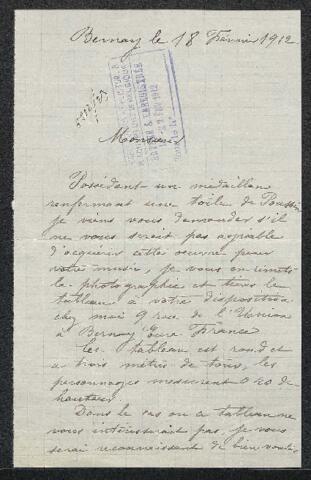 Bernay le 18 Février 1912
Monsieur
Possédant un médaillon
renfermant une toile de Poussin
je viens vous demander s'il
ne vous serait pas agréable
d'acquérir cette oeuvre pour
votre musée, je vous en remets
la photographie et tiens le
tableau à votre disposition
chez moi 9 rue de l'Union
à Bernay Eure France
Le tableau est rond et
a trois mètres de tour, les
personnages mesurent 0 20 de
hauteur.
Dans le cas ou ce tableau ne
vous intéresserait pas, je vous
serai reconnaissant de bien vouloir